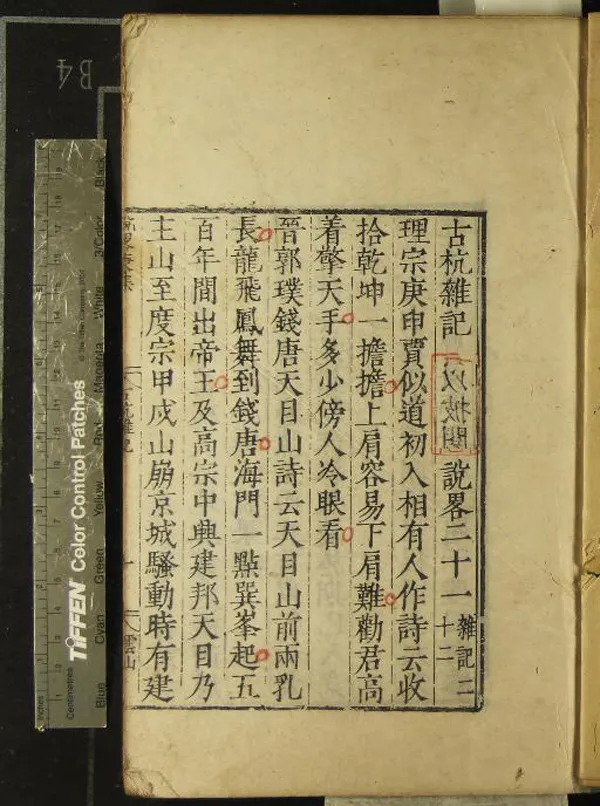 古杭雜記 說畧二十一 雜記二 十二
理宗庚申賈似道初入相有人作詩云收
拾乾坤一擔擔上肩容易下肩難勸君高
着擎天手多少傍人冷眼看
晉郭璞錢唐天目山詩云天目山前兩乳
長龍飛鳳舞到錢唐海門一點巽峯起五
百年間出帝王及高宗中興建邦天目乃
主山至度宗甲戌山崩京城騷動時有建
雲山
B4
TIFFEN Color Control Patches
Blue Cyan Green Yellow Red Magenta White 3/Color Black
Centimetres
Inches